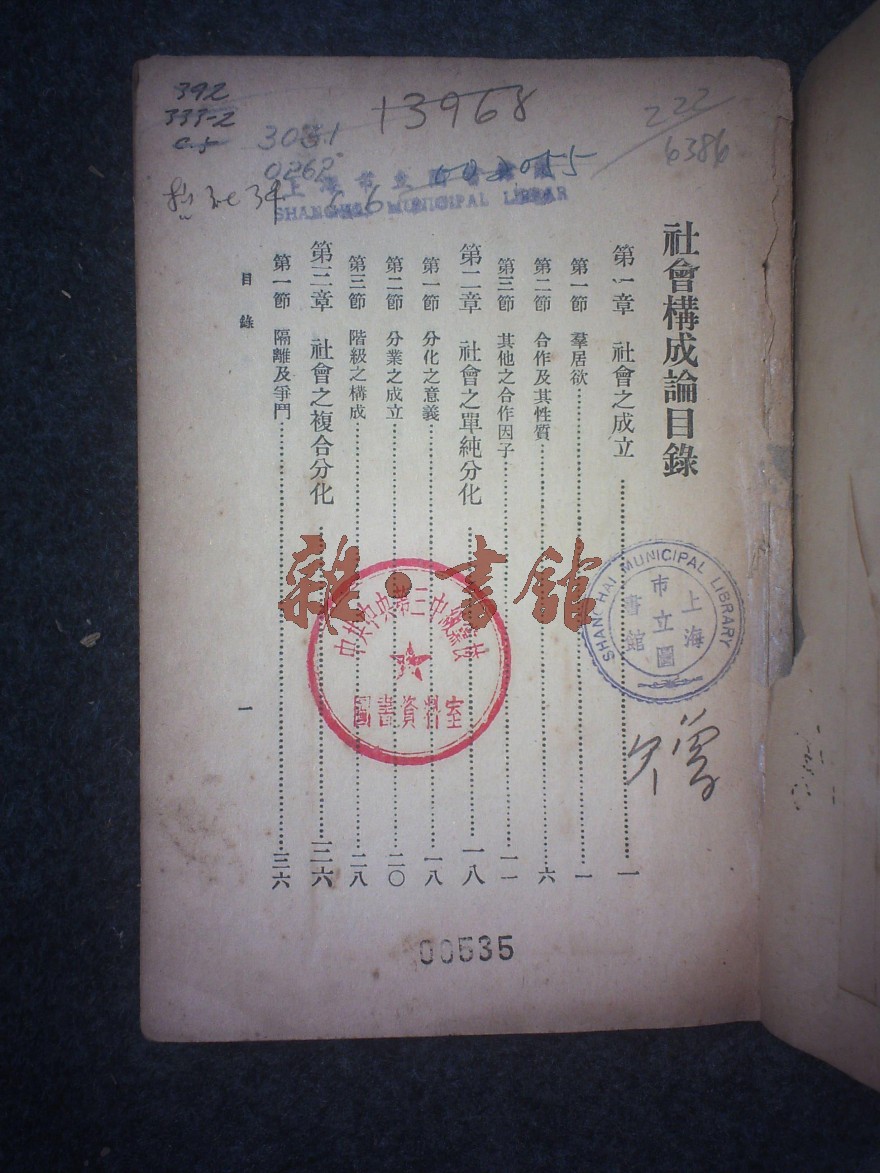 392
333-2
13968
222
6386
上海市立圖書館
SHANGHAI MUNICIPAL LIBRAR
社會構成論目錄
第一章 社會之成立 一
第一節 羣居欲 一
第二節 合作及其性質 六
第三節 其他之合作因子 一一
第二章 社會之單純分化 一八
第一節 分化之意義 一八
第二節 分業之成立 二〇
第三節 階級之構成 二八
第三章 社會之複合分化 三六
第一節 隔離及爭鬥 三六
目錄
一
SHANGHAI MUNICIPAL LIBRARY
上海市立圖書館
中共中央第三中級黨校
圖書資料室
雜·書館
00535